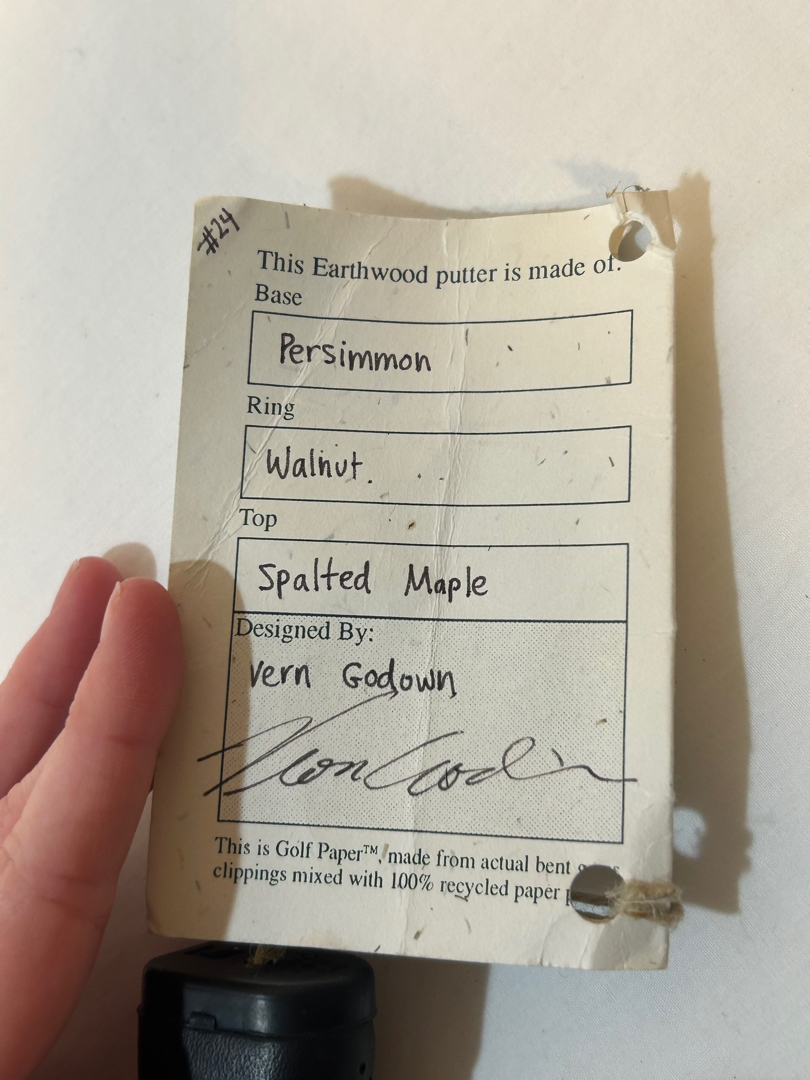 #24
This Earthwood putter is made of:
Base
Persimmon
Ring
Walnut.
Top
Spalted Maple
Designed By:
Vern Godown
This is Golf Paper™, made from actual bent
clippings mixed with 100% recycled paper